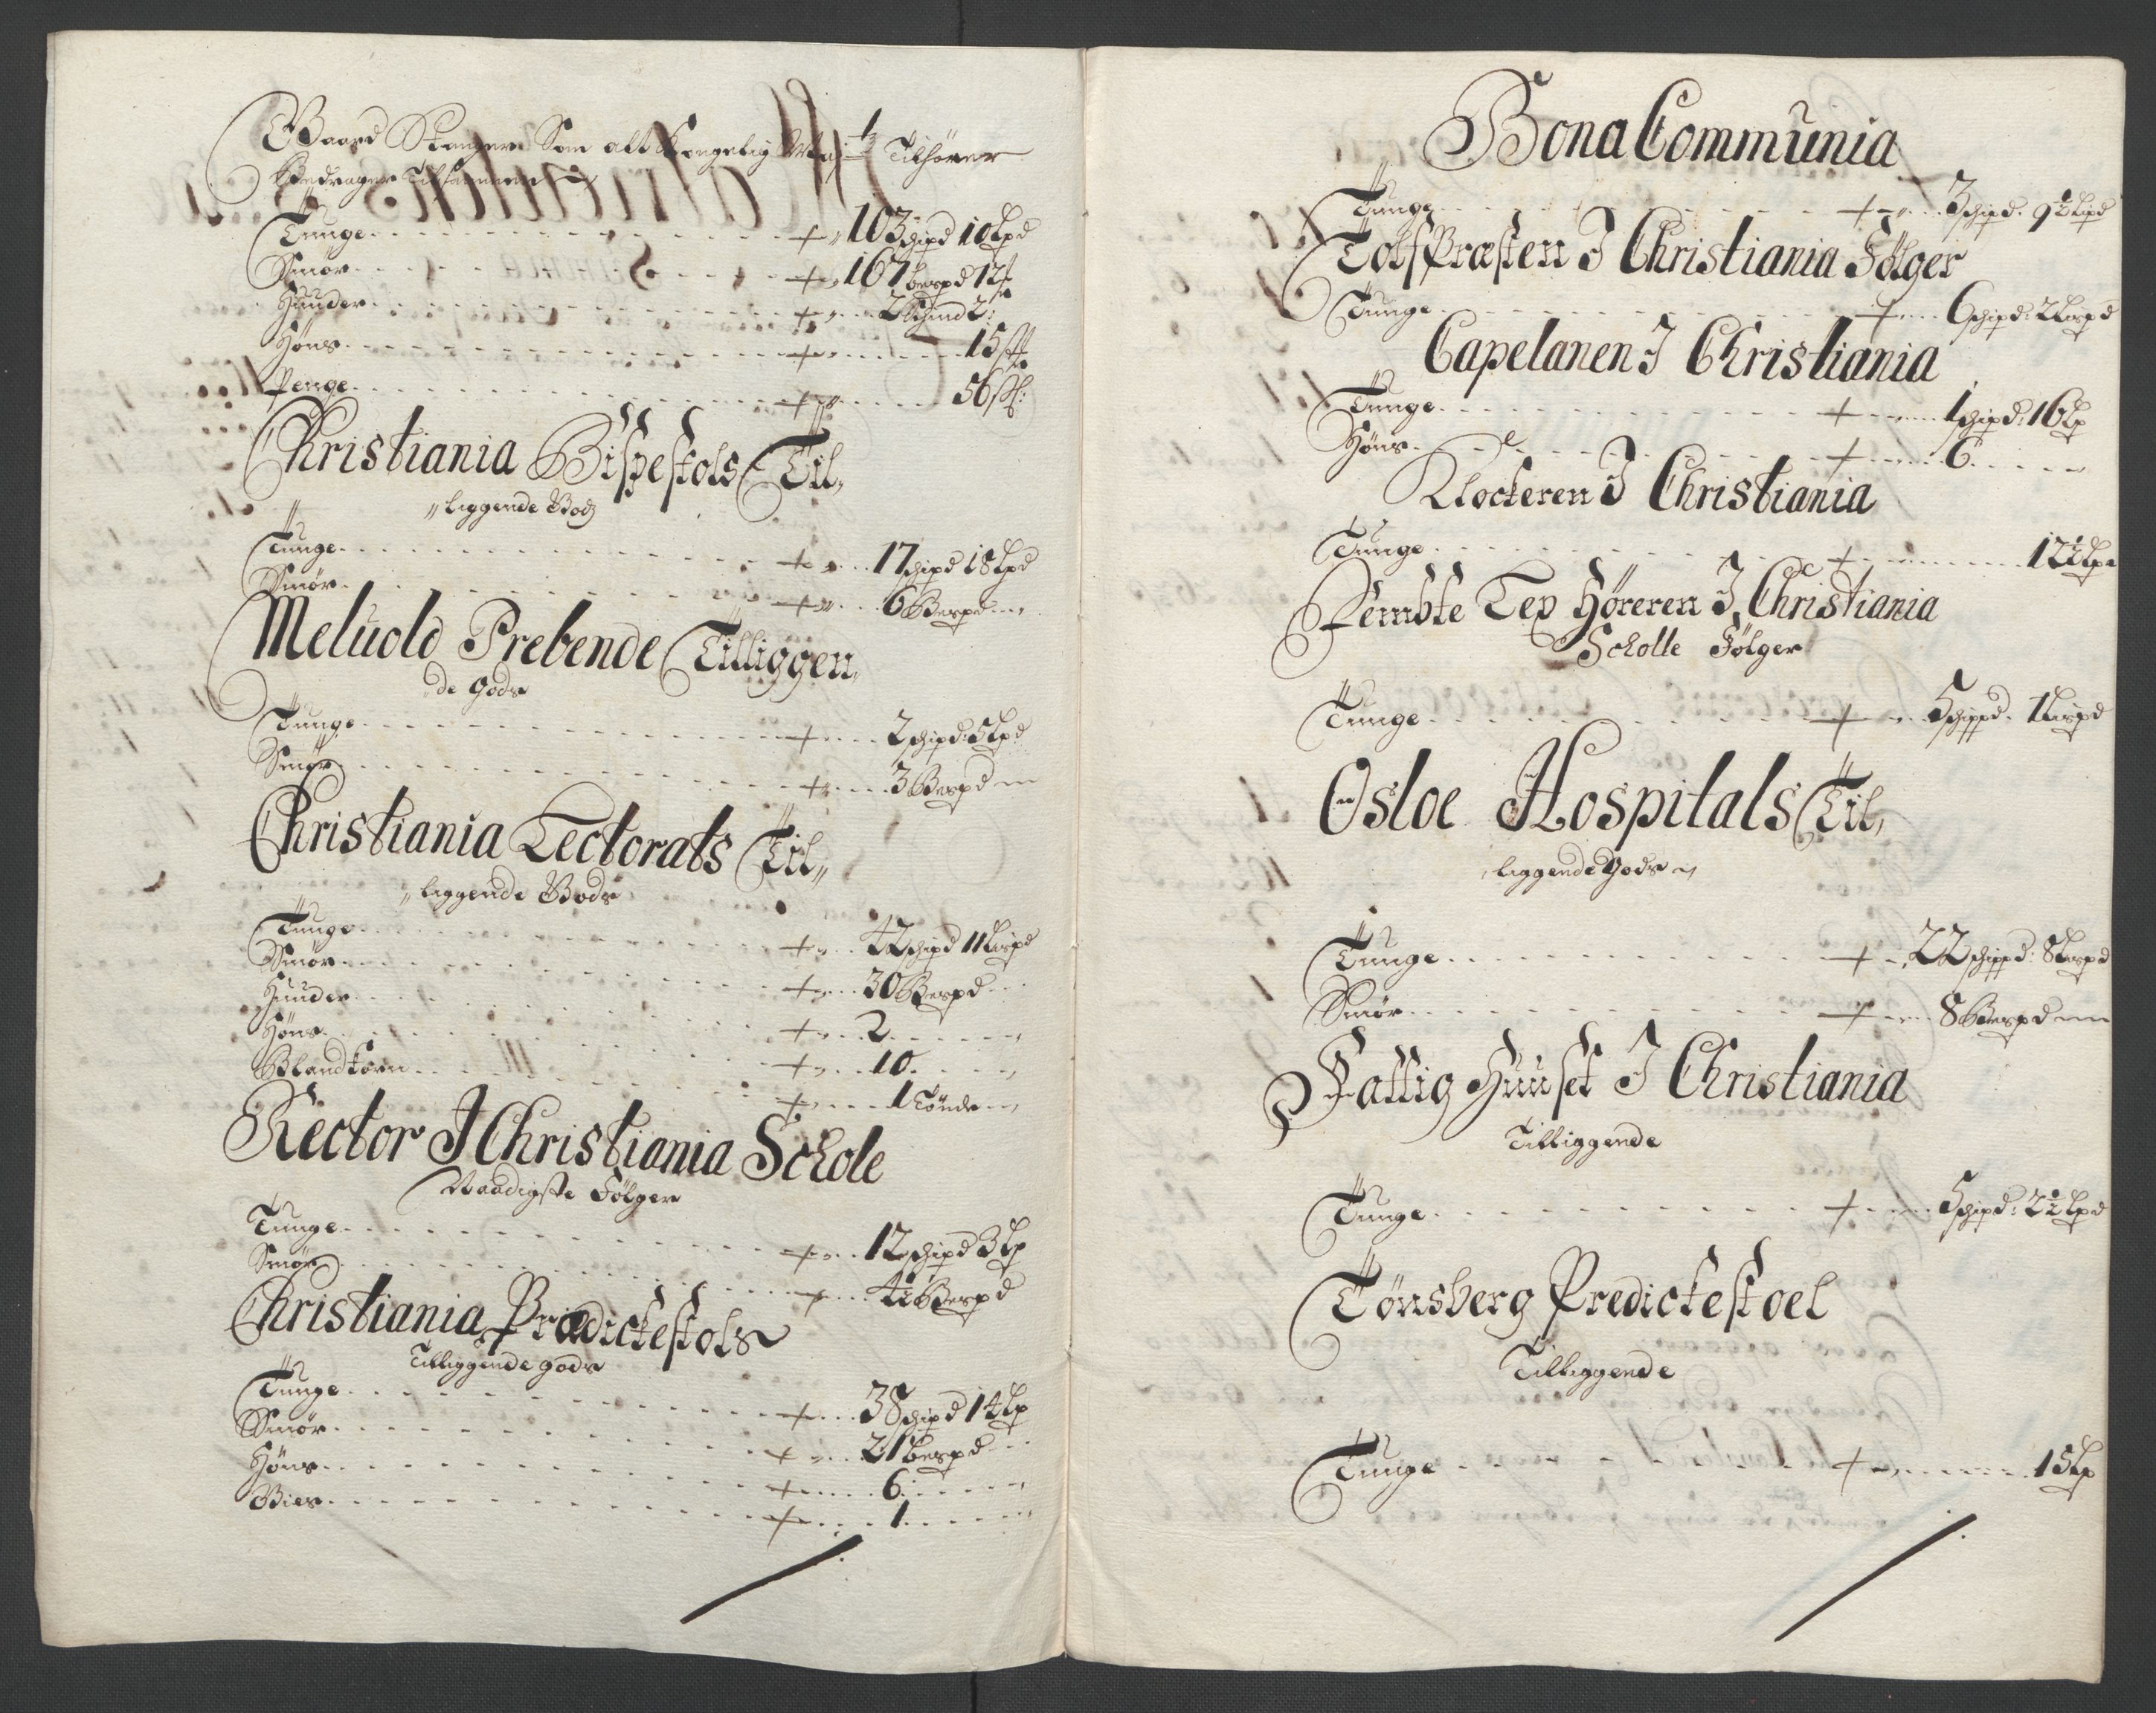 Gaard Stanger Som alt Kongelig May: tt Tilhører
Bedrager Tilsammen
Tunge + 103 schipd 10 Lpd
Smør + 167 bispd 12
Huuder + 2 Schind 2:
Høns + 15 st
Penge + 56 sk:
Christiania Bispestols Til,,
,,liggende Godz
Tunge + 17 schipd 18 Lpd
Smør + 6 Bispd
Meluold Prebende Tilliggen,,
de Gods
Tunge + 2 schipd: 5 Lpd
Smør + 3 Bispd
Christiania Lectorats Til,,
,,liggende Gods
Tunge + 42 schipd 11 Lispd
Smør + 30 Bispd
Huuder + 2
Høns + 10
Blandkorn + 1 Tønde
Rector I Christiania Schole
Naadigste Følger
Tunge + 12 schipd 3 Lp
Smør + 4½ Bispd
Christiania Prædickestols
Tilliggende gods
Tunge + 38 schipd 14 Lp
Smør + 21 bispd
Høns + 6
Bier + 1
Bona Communia
Tunge + 3 schipd. 9½ Lispd
Tolfpræsten I Christiania Følger
Tunge + 6 schipd: 2 Lispd
Capelanen I Christiania
Tunge + 1 schipd: 16 Lp
Høns + 6
Klockeren I Christiania
Tunge + 12½ Lpd
Fembte Lex Høreren I Christiania
Scholle Følger
Tunge + 5 schippd. 1 Lispd
Osloe Hospitals Til,,
liggende Gods
Tunge + 22 schippd: 8 Lispd
Smør + 8 Bispd
Fattig Huuset I Christiania
Tilliggende
Tunge + 5 schipd: 2½ Lpd
Tønsberg Predickestoel
Tilliggende
Tunge + 15 Lp